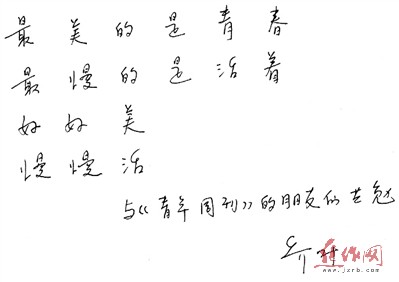 最美的是青春
最慢的是活着
好好美
慢慢活
与《青年周刊》的朋友们共勉
乔叶
焦作网
www.jzrb.com